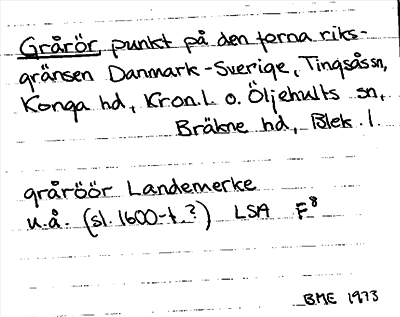 Grårör, punkt på den forna riks-
gränsen Danmark-Sverige, Tingsås sn,
Konga hd, Kron.l. o. Öljehults sn,
Bräkne hd, Blek. l.
gråröör Landemerke
u.å. (sl. 1600-t.?) LSA F8
BME 1973